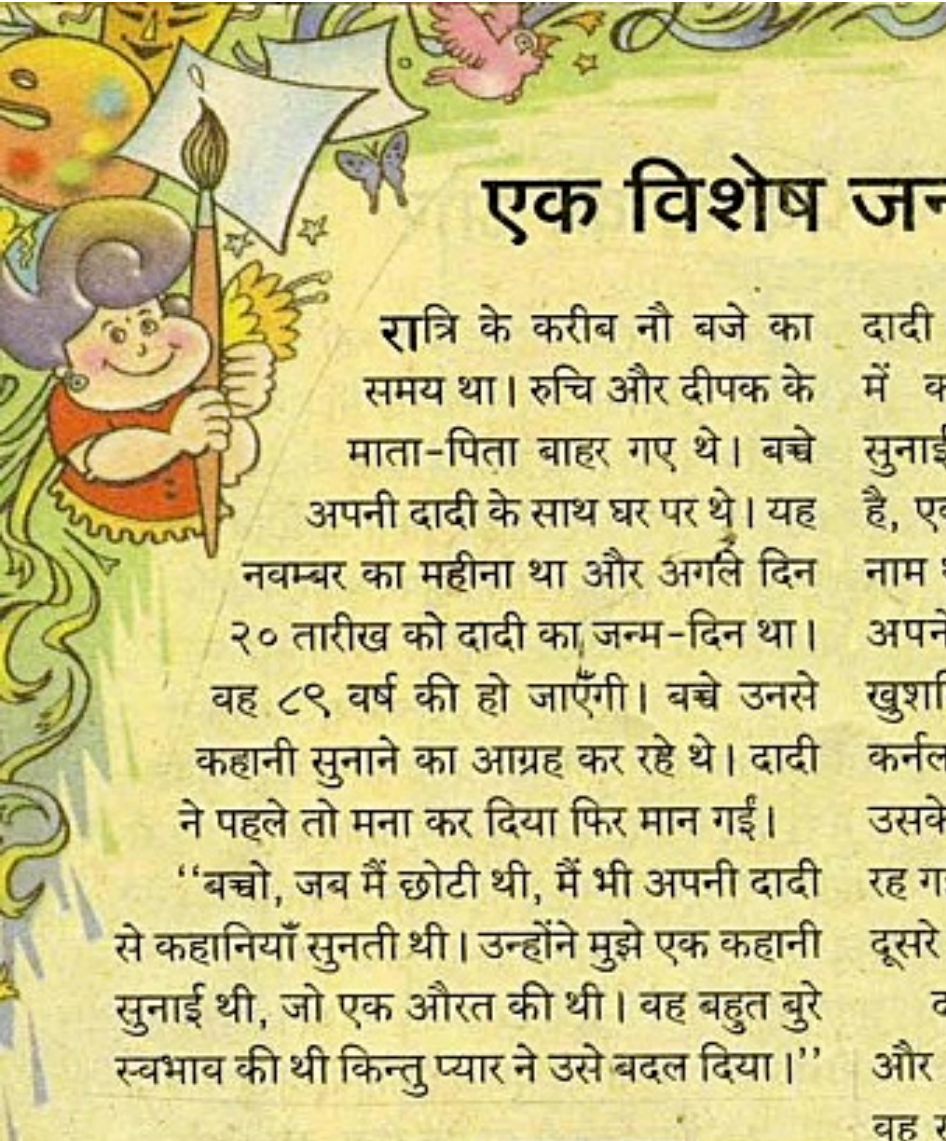 एक विशेष
रात्रि के करीब नौ बजे का
समय था। रुचि और दीपक के
माता-पिता बाहर गए थे। बच्चे
अपनी दादी के साथ घर पर थे। यह
नवम्बर का महीना था और अगले दिन
२० तारीख को दादी का जन्म-दिन था।
वह ८९ वर्ष की हो जाएँगी। बच्चे उनसे
कहानी सुनाने का आग्रह कर रहे थे। दादी
ने पहले तो मना कर दिया फिर मान गईं।
‘‘बच्चो, जब मैं छोटी थी, मैं भी अपनी दादी
से कहानियाँ सुनती थी। उन्होंने मुझे एक कहानी
सुनाई थी, जो एक औरत की थी। वह बहुत बुरे
स्वभाव की थी किन्तु प्यार ने उसे बदल दिया।’’
दादी
में
सुनाई
है,
नाम
कर्नल
दूसरे
और
वह